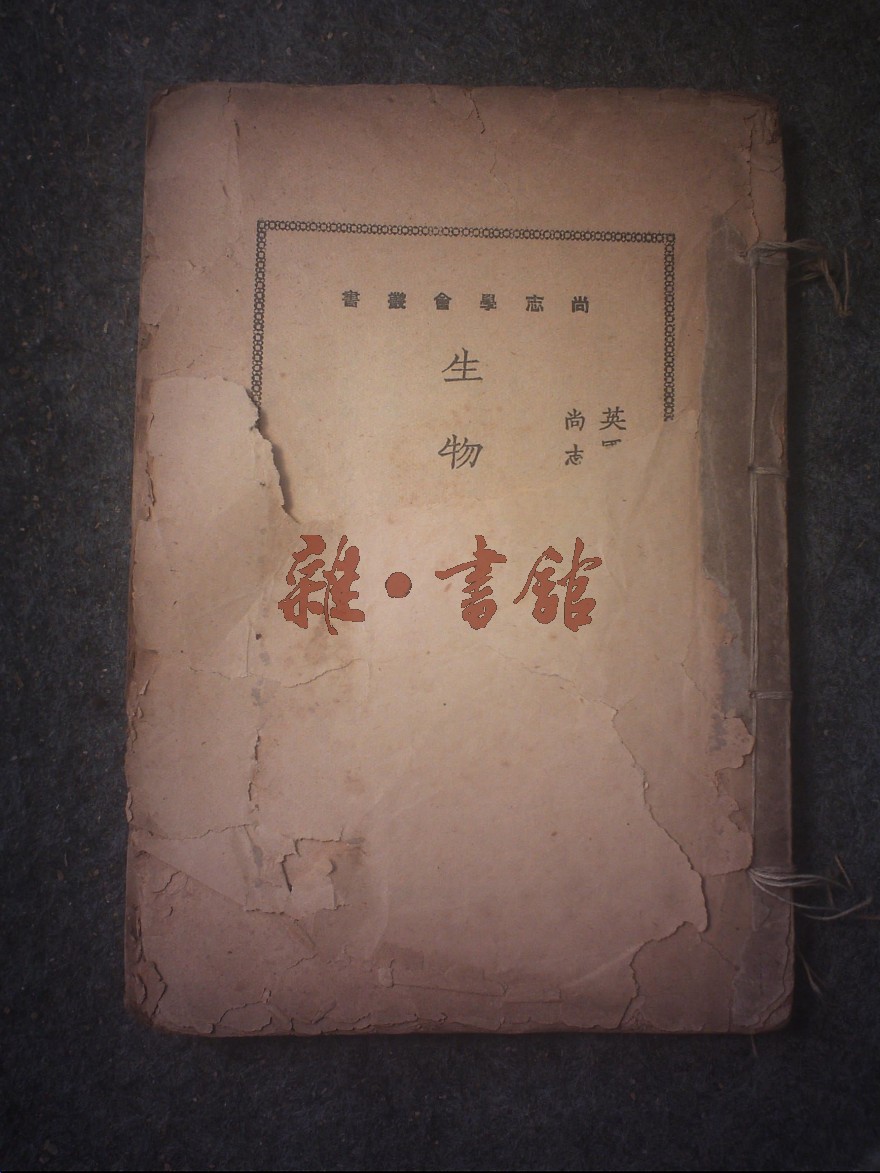 尚志學會叢書
英國
尚志
生物
雜·書館